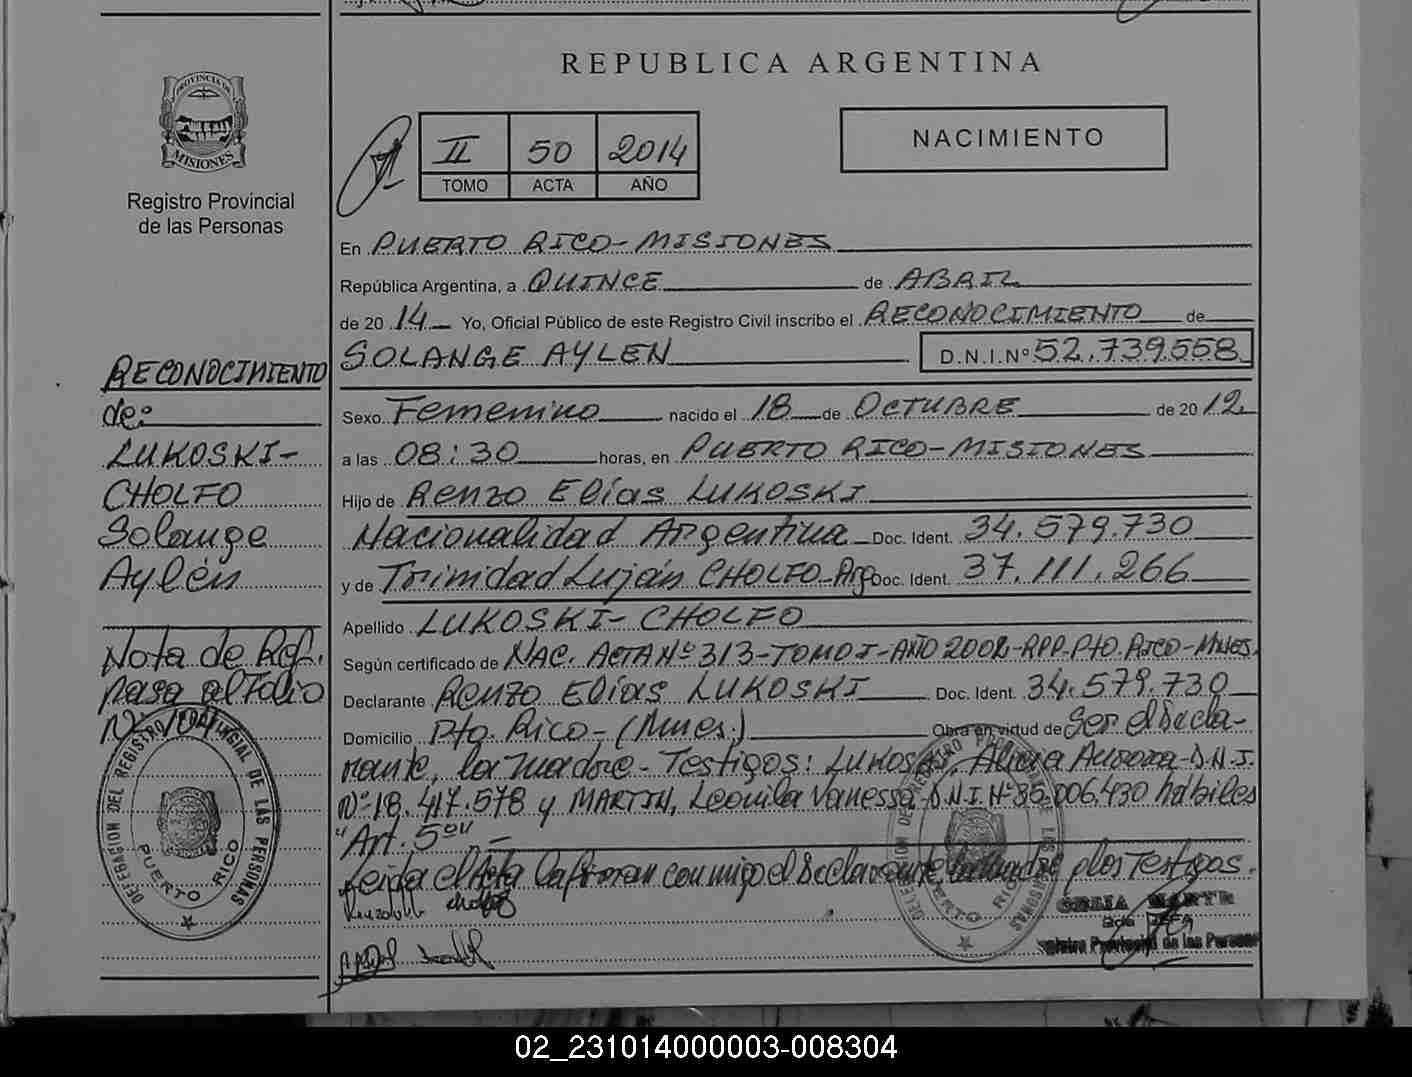 REPUBLICA ARGENTINA
PROVINCIA DE
MISIONES
Registro Provincial
de las Personas
II 50 2014
TOMO ACTA AÑO
NACIMIENTO
En PUERTO RICO-MISIONES
República Argentina, a QUINCE de ABRIL
de 20 14 Yo, Oficial Público de este Registro Civil inscribo el RECONOCIMIENTO de
SOLANGE AYLEN D.N.I.Nº 52.739.558
Sexo Femenino nacido el 18 de OCTUBRE de 20 12
a las 08:30 horas, en PUERTO RICO-MISIONES
Hijo de Renzo Elías LUKOSKI
Nacionalidad Argentina Doc. Ident. 34.579.730
y de Trinidad Luján CHOLFO-Arg Doc. Ident. 37.111.266
Apellido LUKOSKI-CHOLFO
Según certificado de NAC. ACTA Nº 313-TOMO I-AÑO RPP-Pto. RICO-Mnes.
Declarante Renzo Elías LUKOSKI Doc. Ident. 34.579.730
Domicilio Pto. Rico-(Mnes.) Obra en virtud de Ser el Decla-
rante, la madre-Testigos: LUKOSKI, Alicia Aurora-D.N.I.
Nº 18.417.578 y MARTIN, Leonila Vanessa-D.N.I. Nº 35.006.430 hábiles
"Art. 5º"
Leída el Acta la firman conmigo el Declarante la madre y los Testigos.
RECONOCIMIENTO
de:
LUKOSKI-
CHOLFO
Solange
Aylén
Nota de Ref.
pasa al Folio
Nº
DELEGACION DEL REGISTRO PROVINCIAL DE LAS PERSONAS
PUERTO RICO
DELEGACION DEL REGISTRO PROVINCIAL DE LAS PERSONAS
PUERTO RICO
02_231014000003-008304